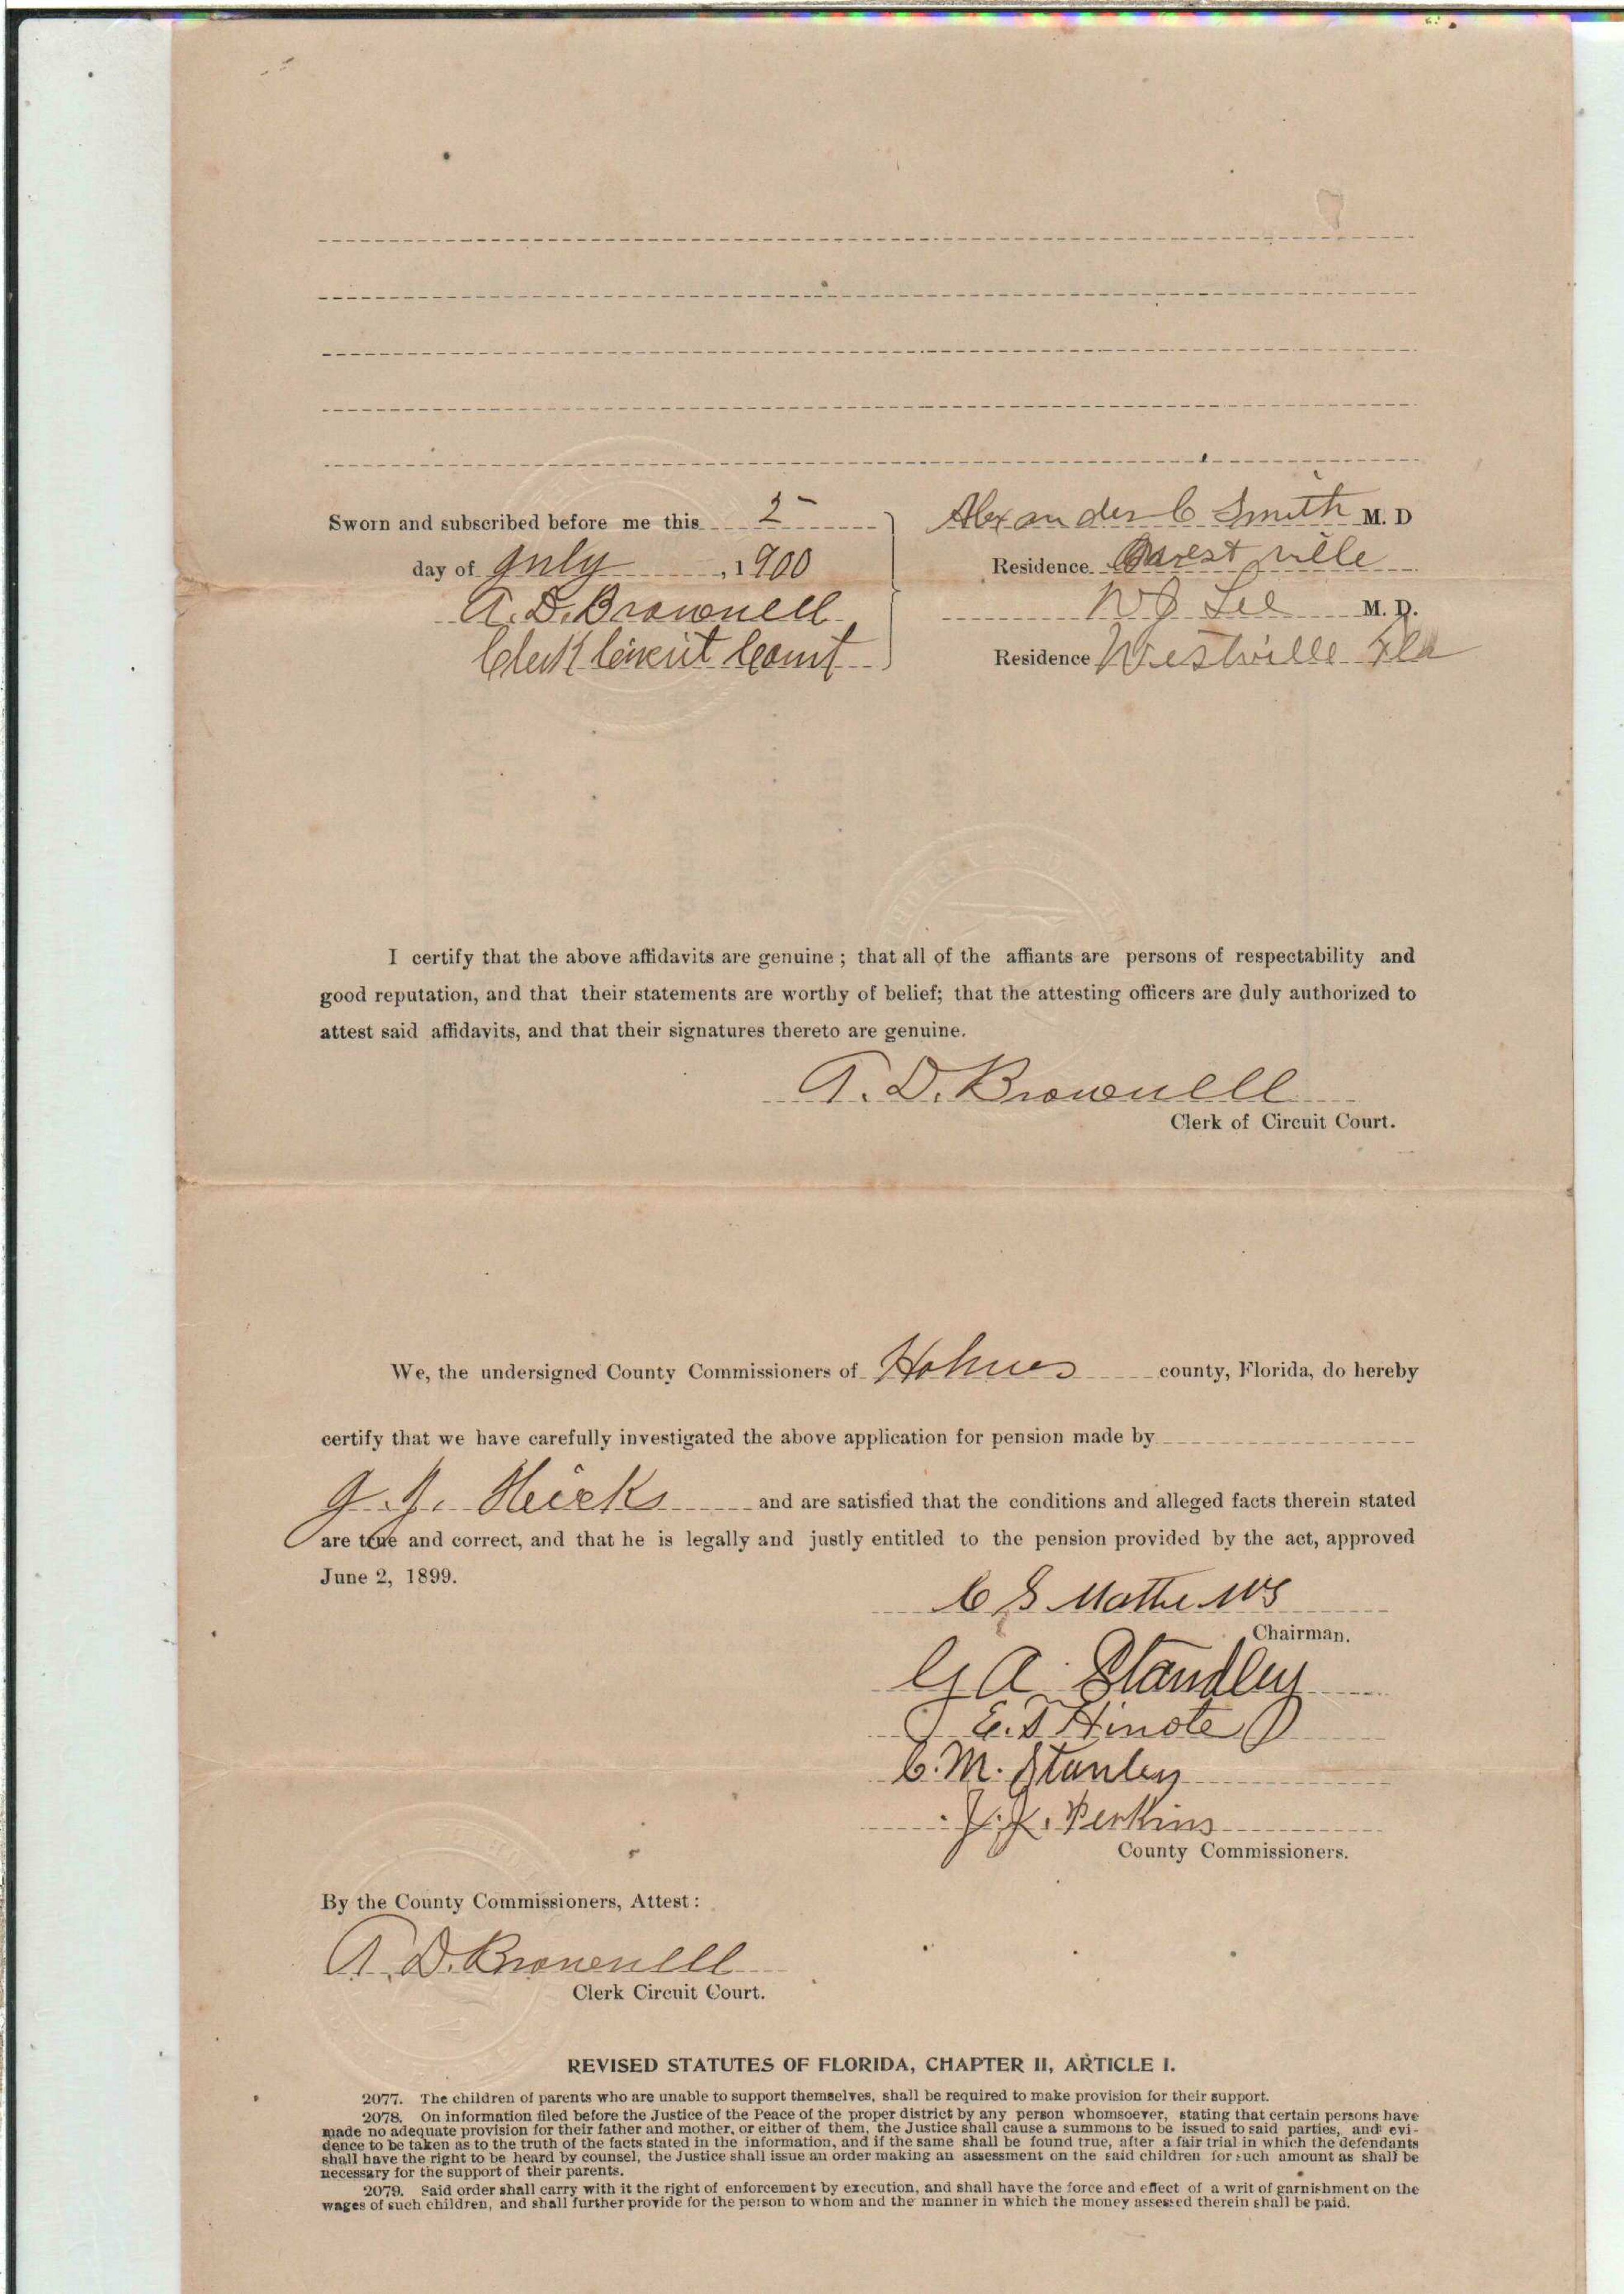 Sworn and subscribed before me this 2
day of July, 1900
A. D. Brownell
Clerk Circuit Court
Alexander C Smith M. D
Residence Westville
W J Lee M. D.
Residence Westville Fla
I certify that the above affidavits are genuine; that all of the affiants are persons of respectability and
good reputation, and that their statements are worthy of belief; that the attesting officers are duly authorized to
attest said affidavits, and that their signatures thereto are genuine.
A. D. Brownell
Clerk of Circuit Court.
We, the undersigned County Commissioners of Holmes county, Florida, do hereby
certify that we have carefully investigated the above application for pension made by
Hicks and are satisfied that the conditions and alleged facts therein stated
are true and correct, and that he is legally and justly entitled to the pension provided by the act, approved
June 2, 1899.
C S Mathews
Chairman.
G A. Standley
E. S Hinote
C. M. Stanley
J. K. Perkins
County Commissioners.
By the County Commissioners, Attest:
A. D. Brownell
Clerk Circuit Court.
REVISED STATUTES OF FLORIDA, CHAPTER II, ARTICLE I.
2077. The children of parents who are unable to support themselves, shall be required to make provision for their support.
2078. On information filed before the Justice of the Peace of the proper district by any person whomsoever, stating that certain persons have
made no adequate provision for their father and mother, or either of them, the Justice shall cause a summons to be issued to said parties, and evi-
dence to be taken as to the truth of the facts stated in the information, and if the same shall be found true, after a fair trial in which the defendants
shall have the right to be heard by counsel, the Justice shall issue an order making an assessment on the said children for such amount as shall be
necessary for the support of their parents.
2079. Said order shall carry with it the right of enforcement by execution, and shall have the force and effect of a writ of garnishment on the
wages of such children, and shall further provide for the person to whom and the manner in which the money assessed therein shall be paid.